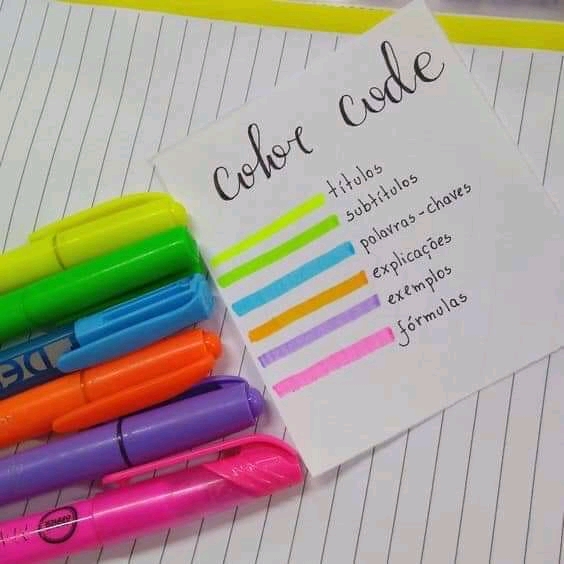 color code
títulos
subtítulos
palavras-chaves
explicações
exemplos
fórmulas